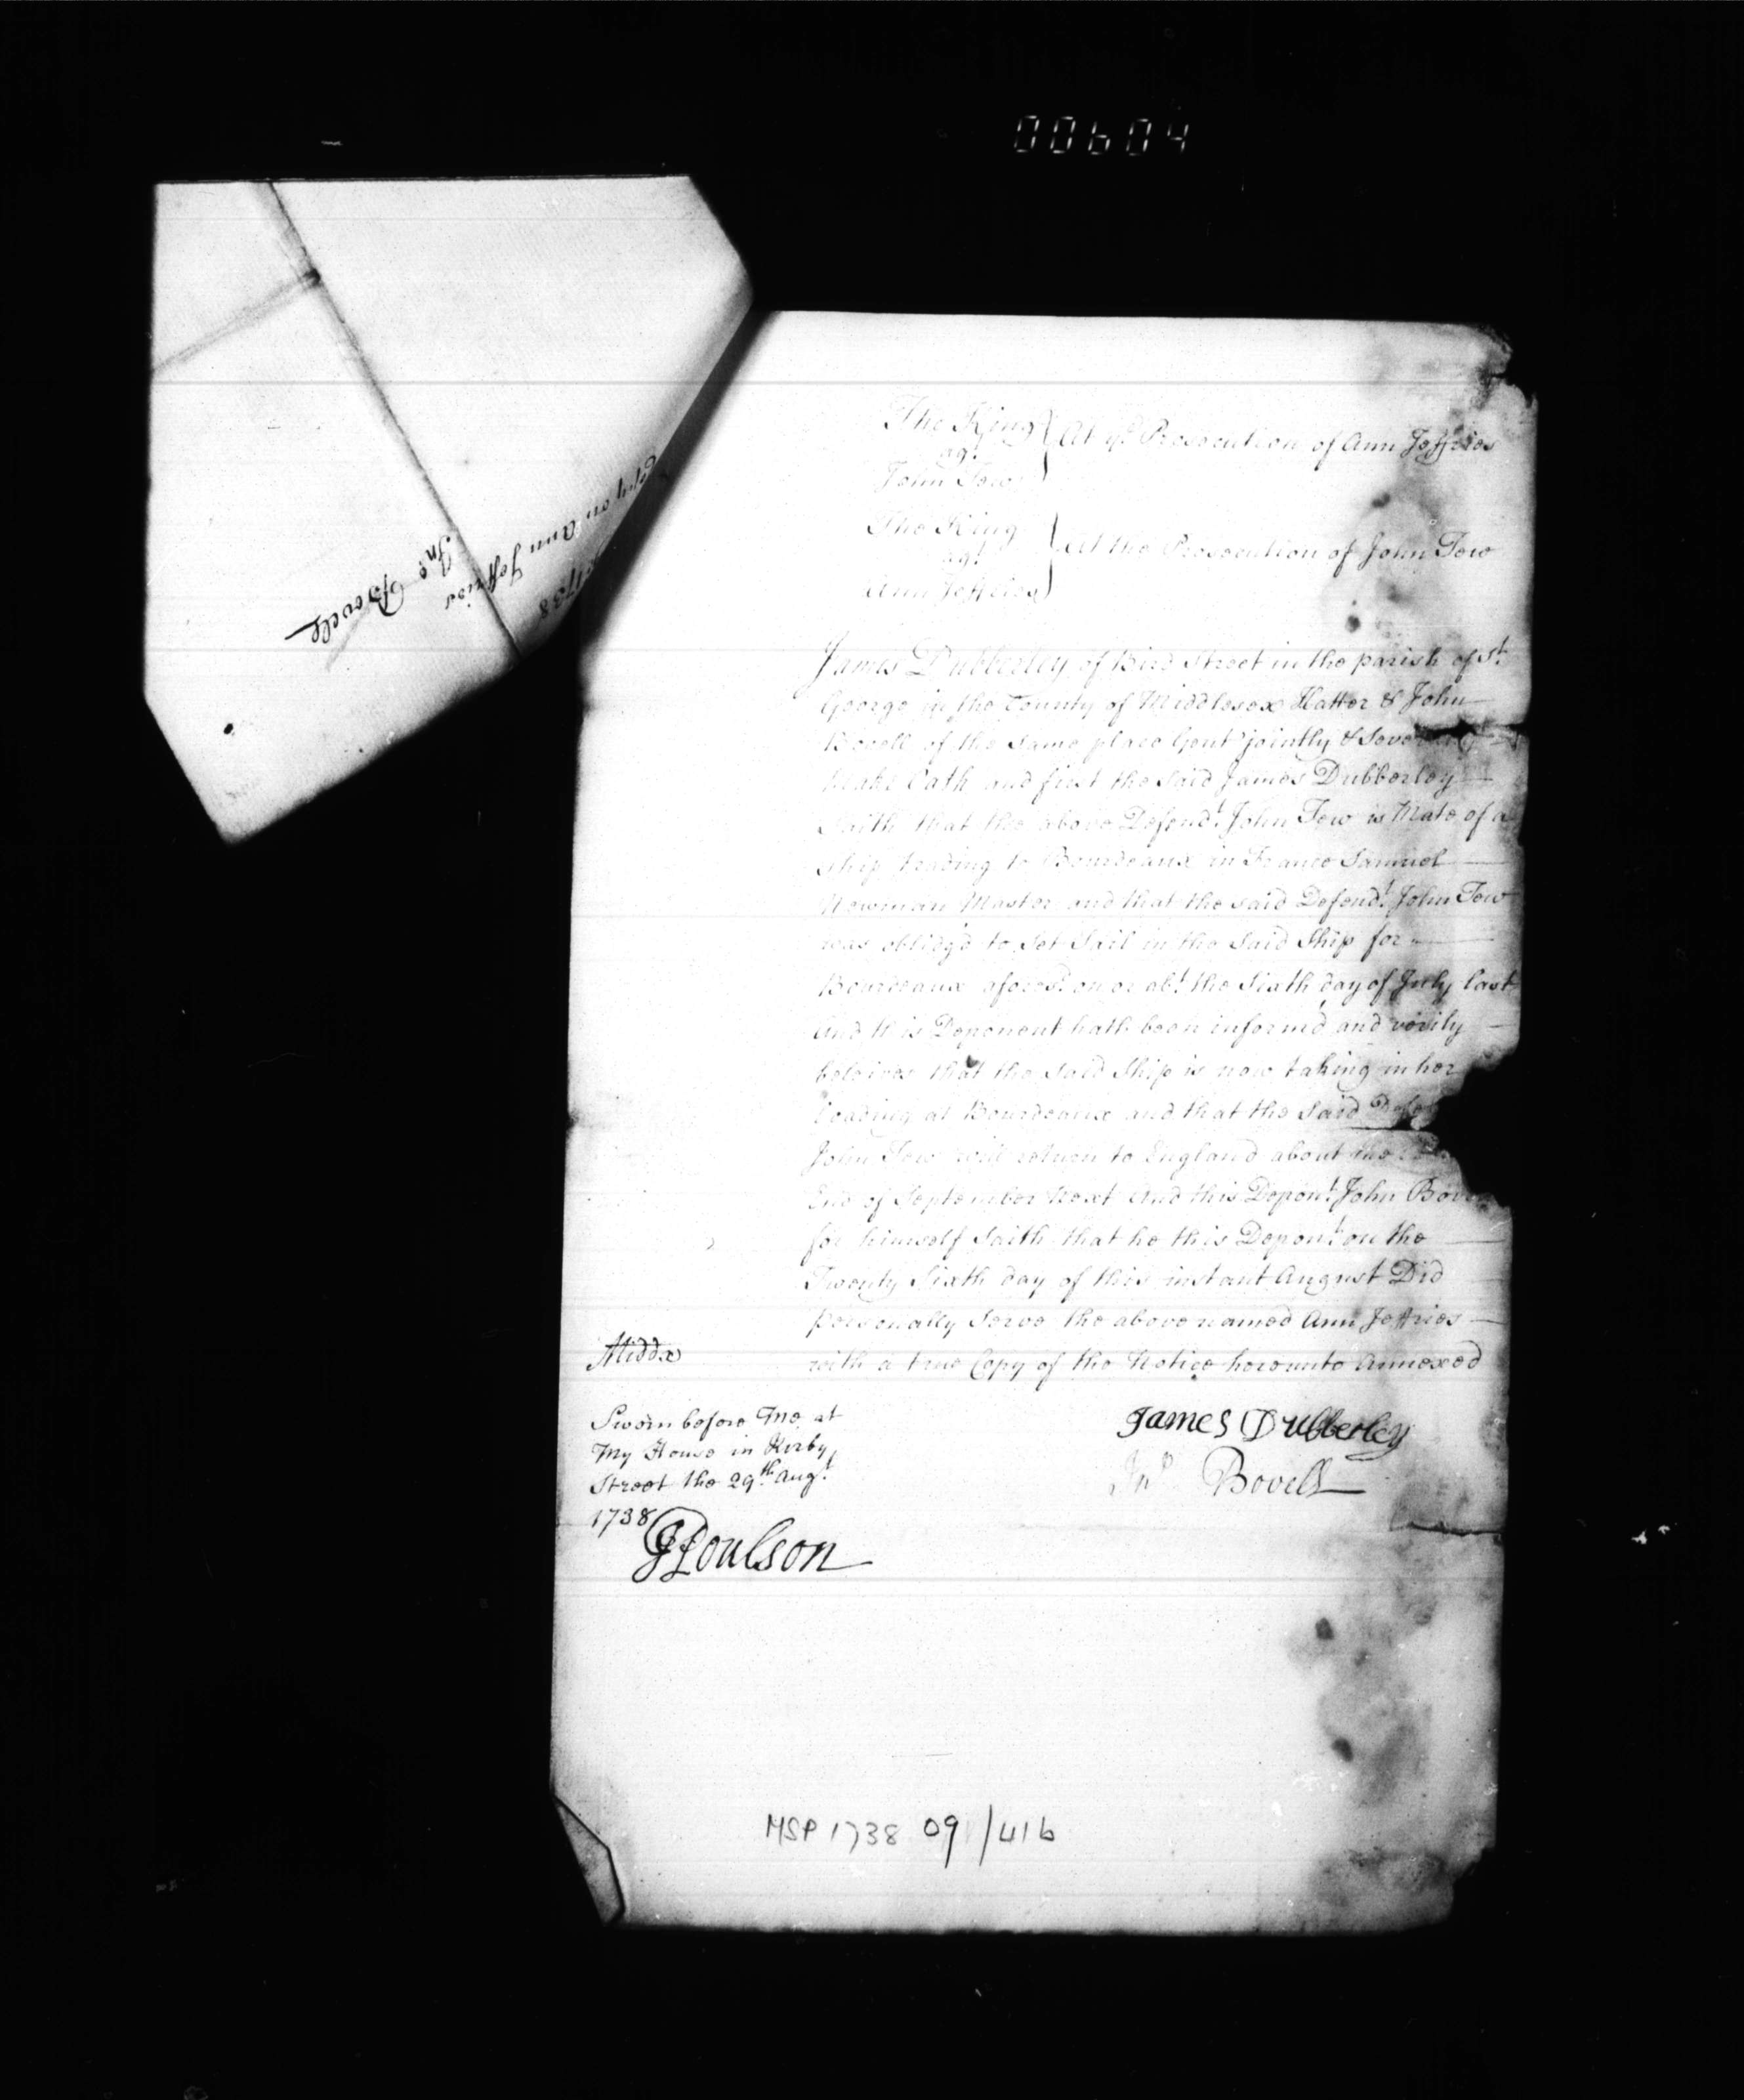 00604
The King
agt.
John Tew
At ye Prosecution of Ann Jeffries
The King
agt.
Ann Jeffries
At the Prosecution of John Tew
James Dubberley of Bird Street in the parish of St.
George in the County of Middlesex Hatter & John
Bovell of the same place Gent jointly & Severally
make Oath and first the said James Dubberley
Saith that the above Defendt. John Tew is Mate of a
Ship trading to Bourdeaux in France Samuel
Newman Master and that the said Defendt. John Tew
was oblidg'd to Set Sail in the Said Ship for
Bourdeaux aforesd. on or abt. the Sixth day of July last
And this Deponent hath been informd and verily
beleives that the said Ship is now taking in her
Loading at Bourdeaux and that the Said
John Tew will return to England about the
End of September Next And this Depont. John Bovell
for himself Saith that he this Depont. on the
Twenty Sixth day of this instant August Did
personally Serve the above named Ann Jeffries
with a true Copy of the Notice hereunto Annexed
Middx
Sworn before me at
My House in Kirby
Street the 29th. Augt.
1738
James Dubberley
Jno Bovell
Poulson
MSP 1738 09/416
1738
Copy on Ann Jeffries
Jno. Bovell